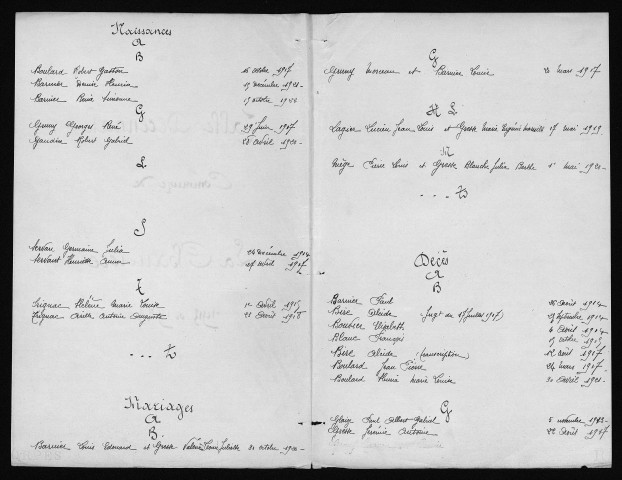 Naissances
A
B
Boulard Robert Gaston 16 octobre 1917
Barnier Denise Henria 19 décembre 1920
Barnier Reine Simonne 19 octobre
G
Georges René 29 Juin 1917
Gaudin Robert Gabriel avril 1920
L
S
Servan Germaine Julia 24 décembre 1914
Servant Henriette 27 avril 1917
T
Trignac Hélène Marie Louise avril 1915
Trignac Antoine Auguste avril 1918
Mariages
A
B
Barnier Louis Edouard et Gresse Valérie Juliette octobre 1920
G
et Barnier Louise mars 1917
H L
Lagier Lucien Jean Louis et Gresse Marie Eugénie 17 mai 1919
M
Miège Pierre Louis et Gresse Blanche Julia Berthe 1 mai 1920
Décès
A
B
Barnier Paul 26 Août 1914
Bère Elcide (Jugt du 17 juillet 1917) 29 septembre 1914
Elisabeth 4 avril 1914
Blanc François 19 octobre 1915
Bère Elcide (transcription) 12 août 1917
Boulard Jean Pierre 24 mars 1917
Boulard Marie Louise 30 avril 1920
G
Paul Albert Gabriel 5 novembre
Gresse Jérémie Antoine 22 avril 1917